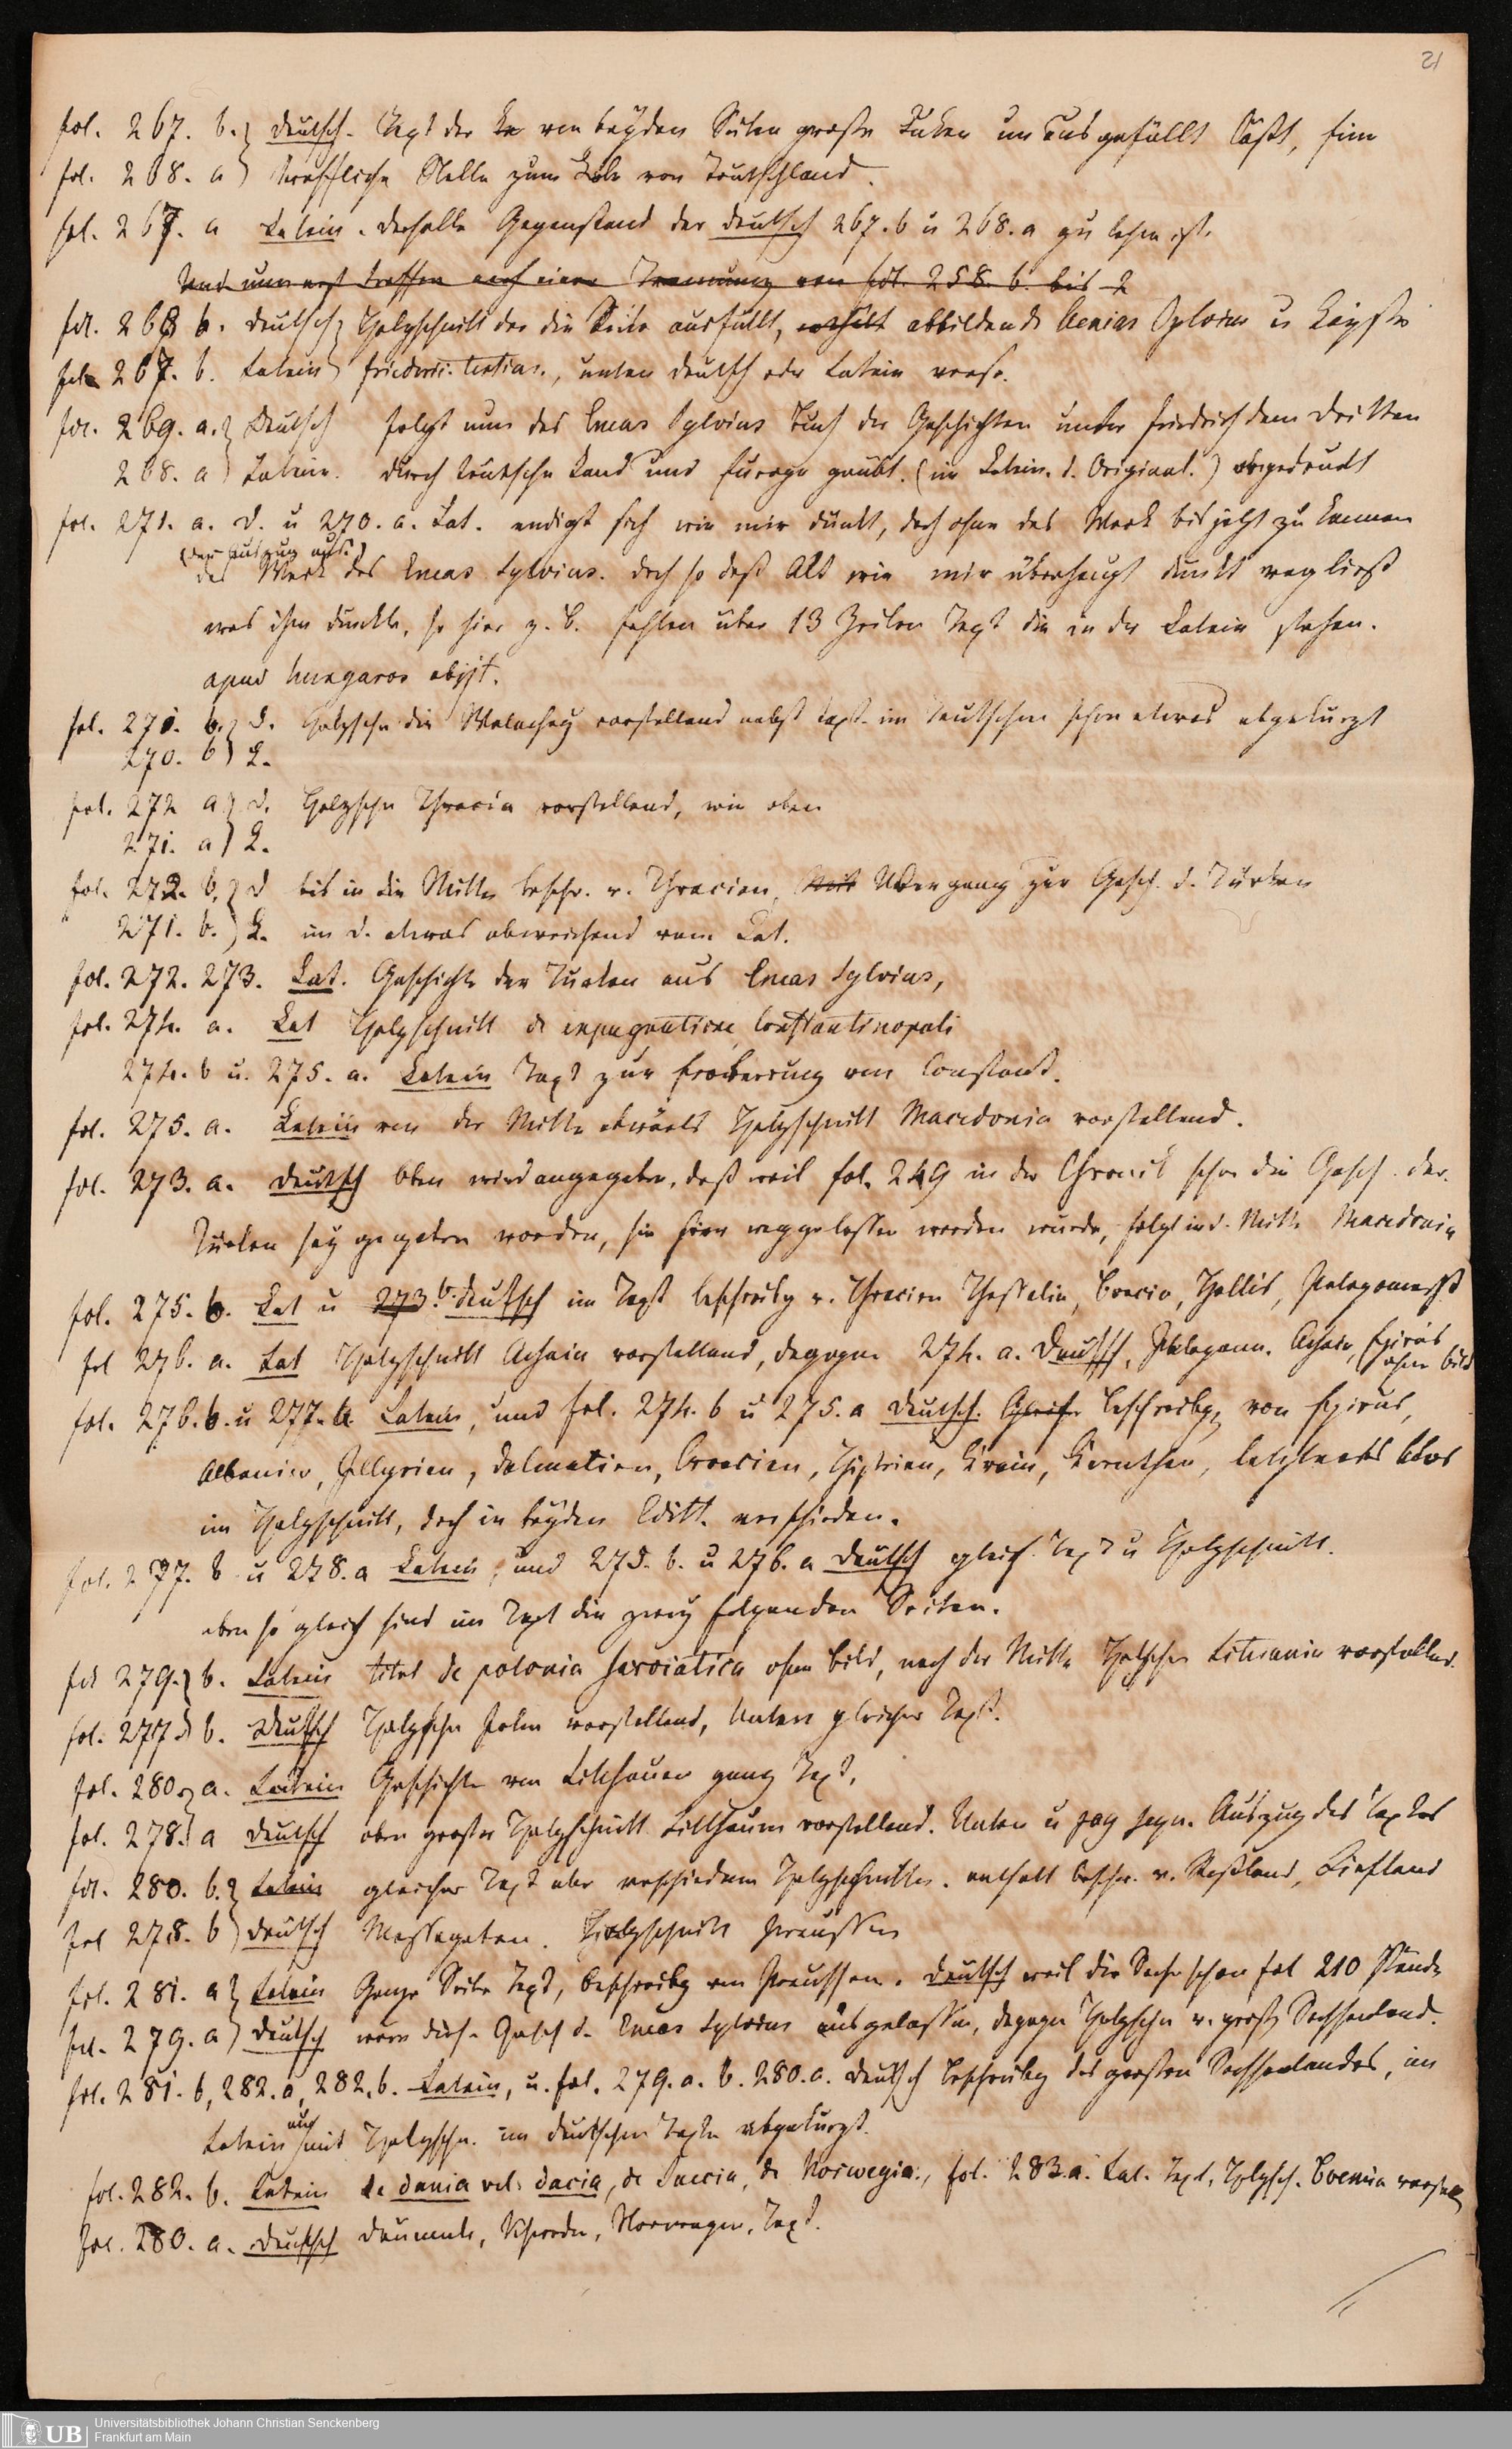 21
fol. 267. b. } deutsch. Text der von beyden Seiten große Lücken unausgefüllt läßt, eine
fol. 268. a } treffliche Stelle zum Lobe von Teutschland.
fol. 267. a Latein. derselbe Gegenstand der deutsch 267. b u 268. a zu lesen ist.
Und nun erst treffen nach einer Trennung von fol. 258. b. bis 2
fol. 268 b. deutsch } Holzschnitt der die Seite ausfüllt, enthält abbildend Aenias Sylvius u Kayser
fol 267. b. Latein } friderici. tertius., unten deutsch oder Latein verse.
fol. 269. a. } Deutsch folgt nun des Eneas Sylvius Buch der Geschichten unter Friedrich dem Dritten
268. a } Latein. durch teutsche Land und Europe geübt. (im Latein. d. Original.) abgedruckt
fol. 271. a. D. u 270. a. Lat. endigt sich wie mir dünkt, doch ohne das Werk bis jetzt zu kennen
(der Auszug aus.)
das Werk des Eneas Sylvius. doch so daß Alt wie mir überhaupt dünkt wegließ
was ihm dünkte, so hier z. B. fehlen über 13 Zeilen Text die in der Latein stehen.
apud hungaros obijt.
fol. 271. b. } D. Holzschn. die Walachey vorstellend nebst Text. im Deutschen schon etwas abgekürzt
270. b } L.
fol. 272 a } D. Holzschn Thracia vorstellend, wie oben
271. a } L.
fol. 272. b. } D bis in die Mitte beschr. v. Thracien, Übergang zur Gesch. d. Türken
271. b. } L. im D. etwas abweichend vom Lat.
fol. 272. 273. Lat. Geschichte der Türken aus Eneas Sylvius,
fol. 274. a. Lat Holzschnitt de expugnatione Constantinopoli
274. b u. 275. a. Latein Text zur Eroberung von Constant.
fol. 275. a. Latein von der Mitte abwärts Holzschnitt Macedonia vorstellend.
fol. 273. a. deutsch Oben wird angegeben, daß weil fol. 249 in der Chronik schon die Gesch. der
Türken sey gegeben worden, sie hier weggelassen werden würde, folgt in d. Mitte Macedonia
fol. 275. b. Lat u 273. b. deutsch im Text beschreibg v. Thracien Thessalien, Boecia, Hellis, Peloponneß
fol 276. a. Lat Holzschnitt Achaia vorstellend, dagegen 274. a. Deutsch, Pelopon. Achaia, Epirus
ohne Bild
fol. 276. b. u 277. a Latein, und fol. 274. b u 275. a deutsch. Gleich Beschreibg von Epirus,
Albanien, Illyrien, Dalmatien, Croacien, Histrien, Krain, Kärnthen, letzteres blos
im Holzschnitt, doch in beyden Editt. verschieden.
fol. 277. b u 278. a Latein, und 275. b. u 276. a deutsch gleich. Text u Holzschnitt.
eben so gleich sind im Text die zwey folgenden Seiten.
fol 279. } b. Latein titel de polonia sarviatica ohne Bild, nach der Mitte Holzschn Lituania vorstellend.
fol. 277 } b. Deutsch Holzschn Polen vorstellend, Unten gleicher Text.
fol. 280. } a. Latein Geschichte von Litthauen ganz Text,
fol. 278. } a deutsch oben großer Holzschnitt Litthauen vorstellend. Unten u Auszug des Textes
fol. 280. b. } Latein gleicher Text aber verschiedene Holzschnitte. enthält beschr. v. Rußland, Liefland
fol 278. b } deutsch Massageten. Holzschnitt Preussen
fol. 281. a } Latein Ganze Seite Text, beschreibg von Preussen. Deutsch weil die Sache schon fol 210 stünde
fol. 279. a } deutsch wäre diese Gesch d. Eneas Sylvius ausgelassen, dagegen Holzschn v. groß Sachsenland.
fol. 281. b, 282. a, 282. b. Latein, u. fol. 279. a. b. 280. a. deutsch beschreibg des großen Sachsenlandes, im
Latein auch mit Holzschn. im deutschen Texte abgekürzt.
fol. 282. b. Latein de dania vel dacia, de Suecia, de Norwegia., fol. 283. a. Lat. Text, Holzsch. Boemia vorstell
fol. 280. a. deutsch Dänmark, Schweden, Norwegen, Text.
UB
Universitätsbibliothek Johann Christian Senckenberg
Frankfurt am Main